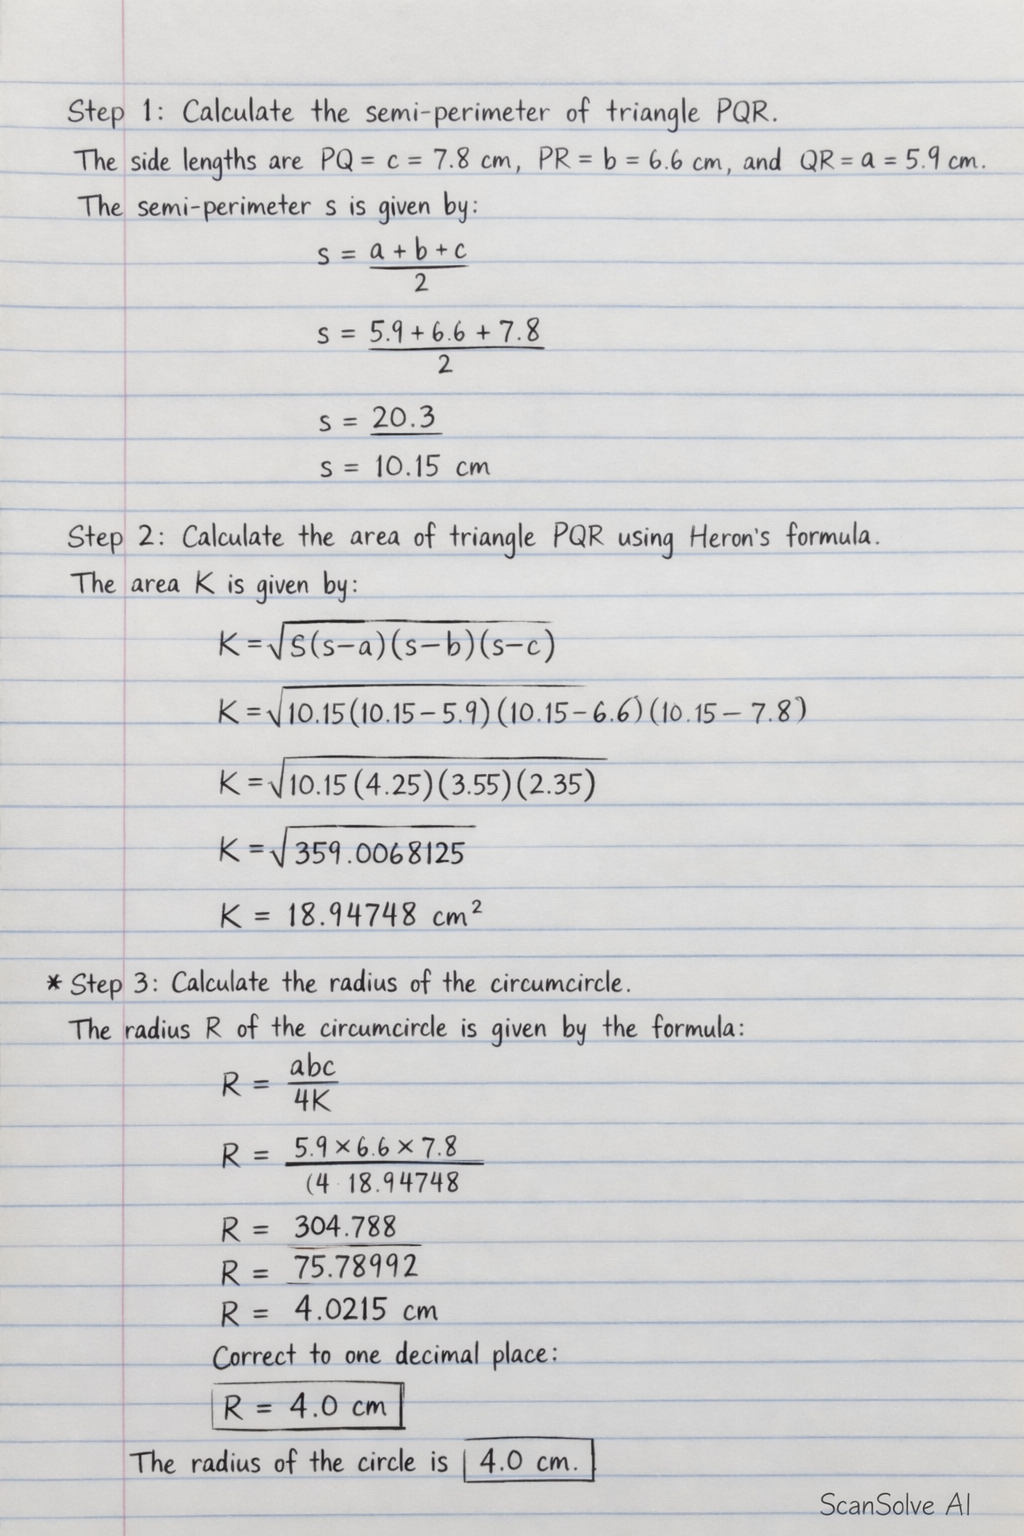 Step 1: Calculate the semi-perimeter of triangle PQR.
The side lengths are PQ = c = 7.8 cm, PR = b = 6.6 cm, and QR = a = 5.9 cm.
The semi-perimeter s is given by:
s = a + b + c
2
s = 5.9 + 6.6 + 7.8
2
s = 20.3
s = 10.15 cm
Step 2: Calculate the area of triangle PQR using Heron's formula.
The area K is given by:
K = √S(s-a)(s-b)(s-c)
K = √10.15(10.15-5.9)(10.15-6.6)(10.15-7.8)
K = √10.15(4.25)(3.55)(2.35)
K = √359.0068125
K = 18.94748 cm²
* Step 3: Calculate the radius of the circumcircle.
The radius R of the circumcircle is given by the formula:
R = abc
4K
R = 5.9 × 6.6 × 7.8
(4 · 18.94748
R = 304.788
R = 75.78992
R = 4.0215 cm
Correct to one decimal place:
R = 4.0 cm
The radius of the circle is 4.0 cm.
ScanSolve AI